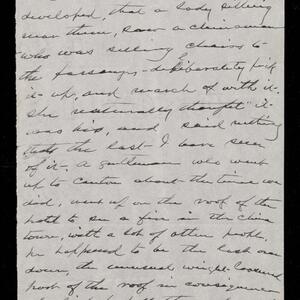 developed, that a lady sitting
near them, saw a chinaman
who was selling chairs to
the passengers - deliberately pick
it up, and march off with it.
she naturally thought it
was his, and said nothing
that's the last I have seen
of it. A gentleman who went
up to Canton about the time we
did, went up on the roof of the
hotel to see a fire in the china
town, with a lot of other people,
he happened to be the last one
down, the unusual weight loosened
part of the roof in consequence